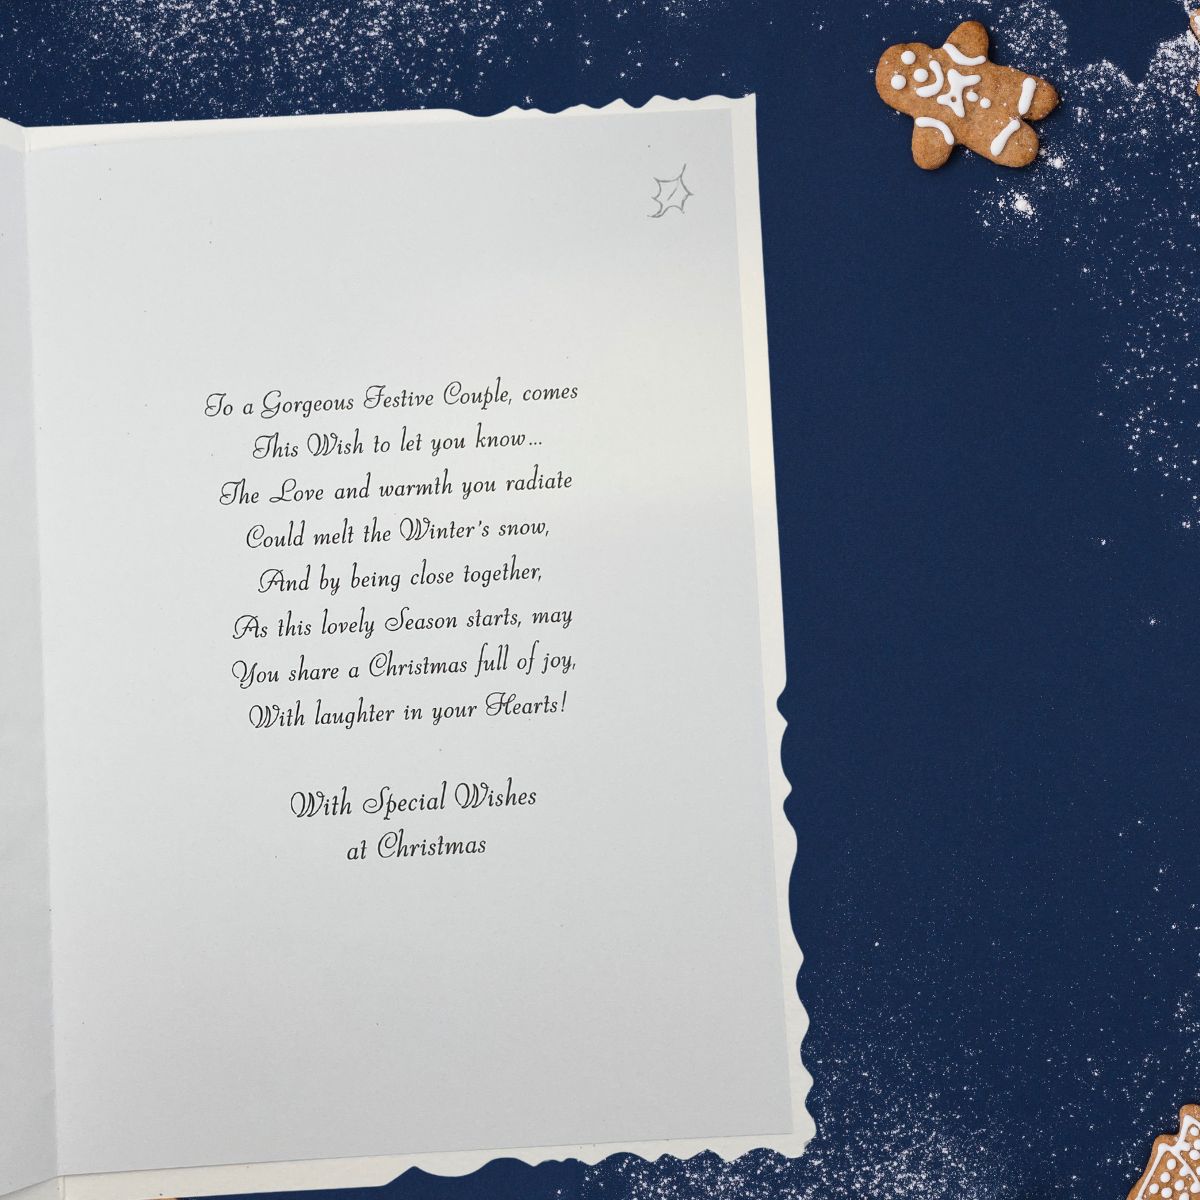 To a Gorgeous Festive Couple, comes
This Wish to let you know...
The Love and warmth you radiate
Could melt the Winter's snow,
And by being close together,
As this lovely Season starts, may
You share a Christmas full of joy,
With laughter in your Hearts!
With Special Wishes
at Christmas